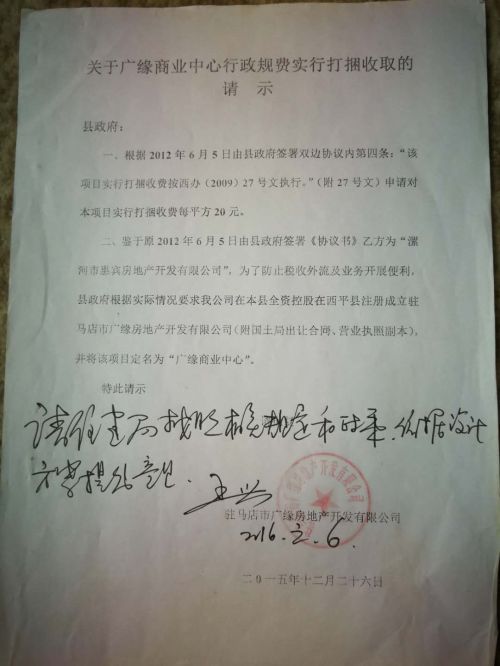 关于广缘商业中心行政规费实行打捆收取的
请 示
县政府：
一、根据 2012 年 6 月 5 日由县政府签署双边协议内第四条：“该
项目实行打捆收费按西办（2009）27 号文执行。”（附 27 号文）申请对
本项目实行打捆收费每平方 20 元。
二、鉴于原 2012 年 6 月 5 日由县政府签署《协议书》乙方为“漯
河市惠宾房地产开发有限公司”，为了防止税收外流及业务开展便利，
县政府根据实际情况要求我公司在本县全资控股在西平县注册成立驻
马店市广缘房地产开发有限公司（附国土局出让合同、营业执照副本），
并将该项目定名为“广缘商业中心”。
特此请示
请住建局按照相关规定和政策，依据设计
方案提出意见．
驻马店市广缘房地产开发有限公司
2016.2.6
二〇一五年十二月二十六日